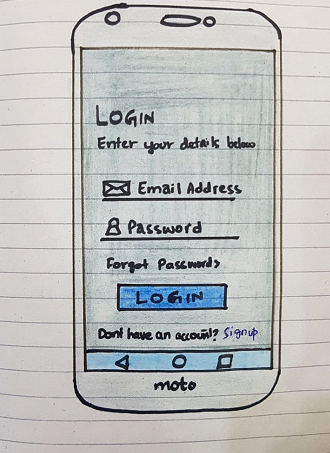 LOGIN
Enter your details below
Email Address
Password
Forgot Password?
LOGIN
Dont have an account? Signup
moto